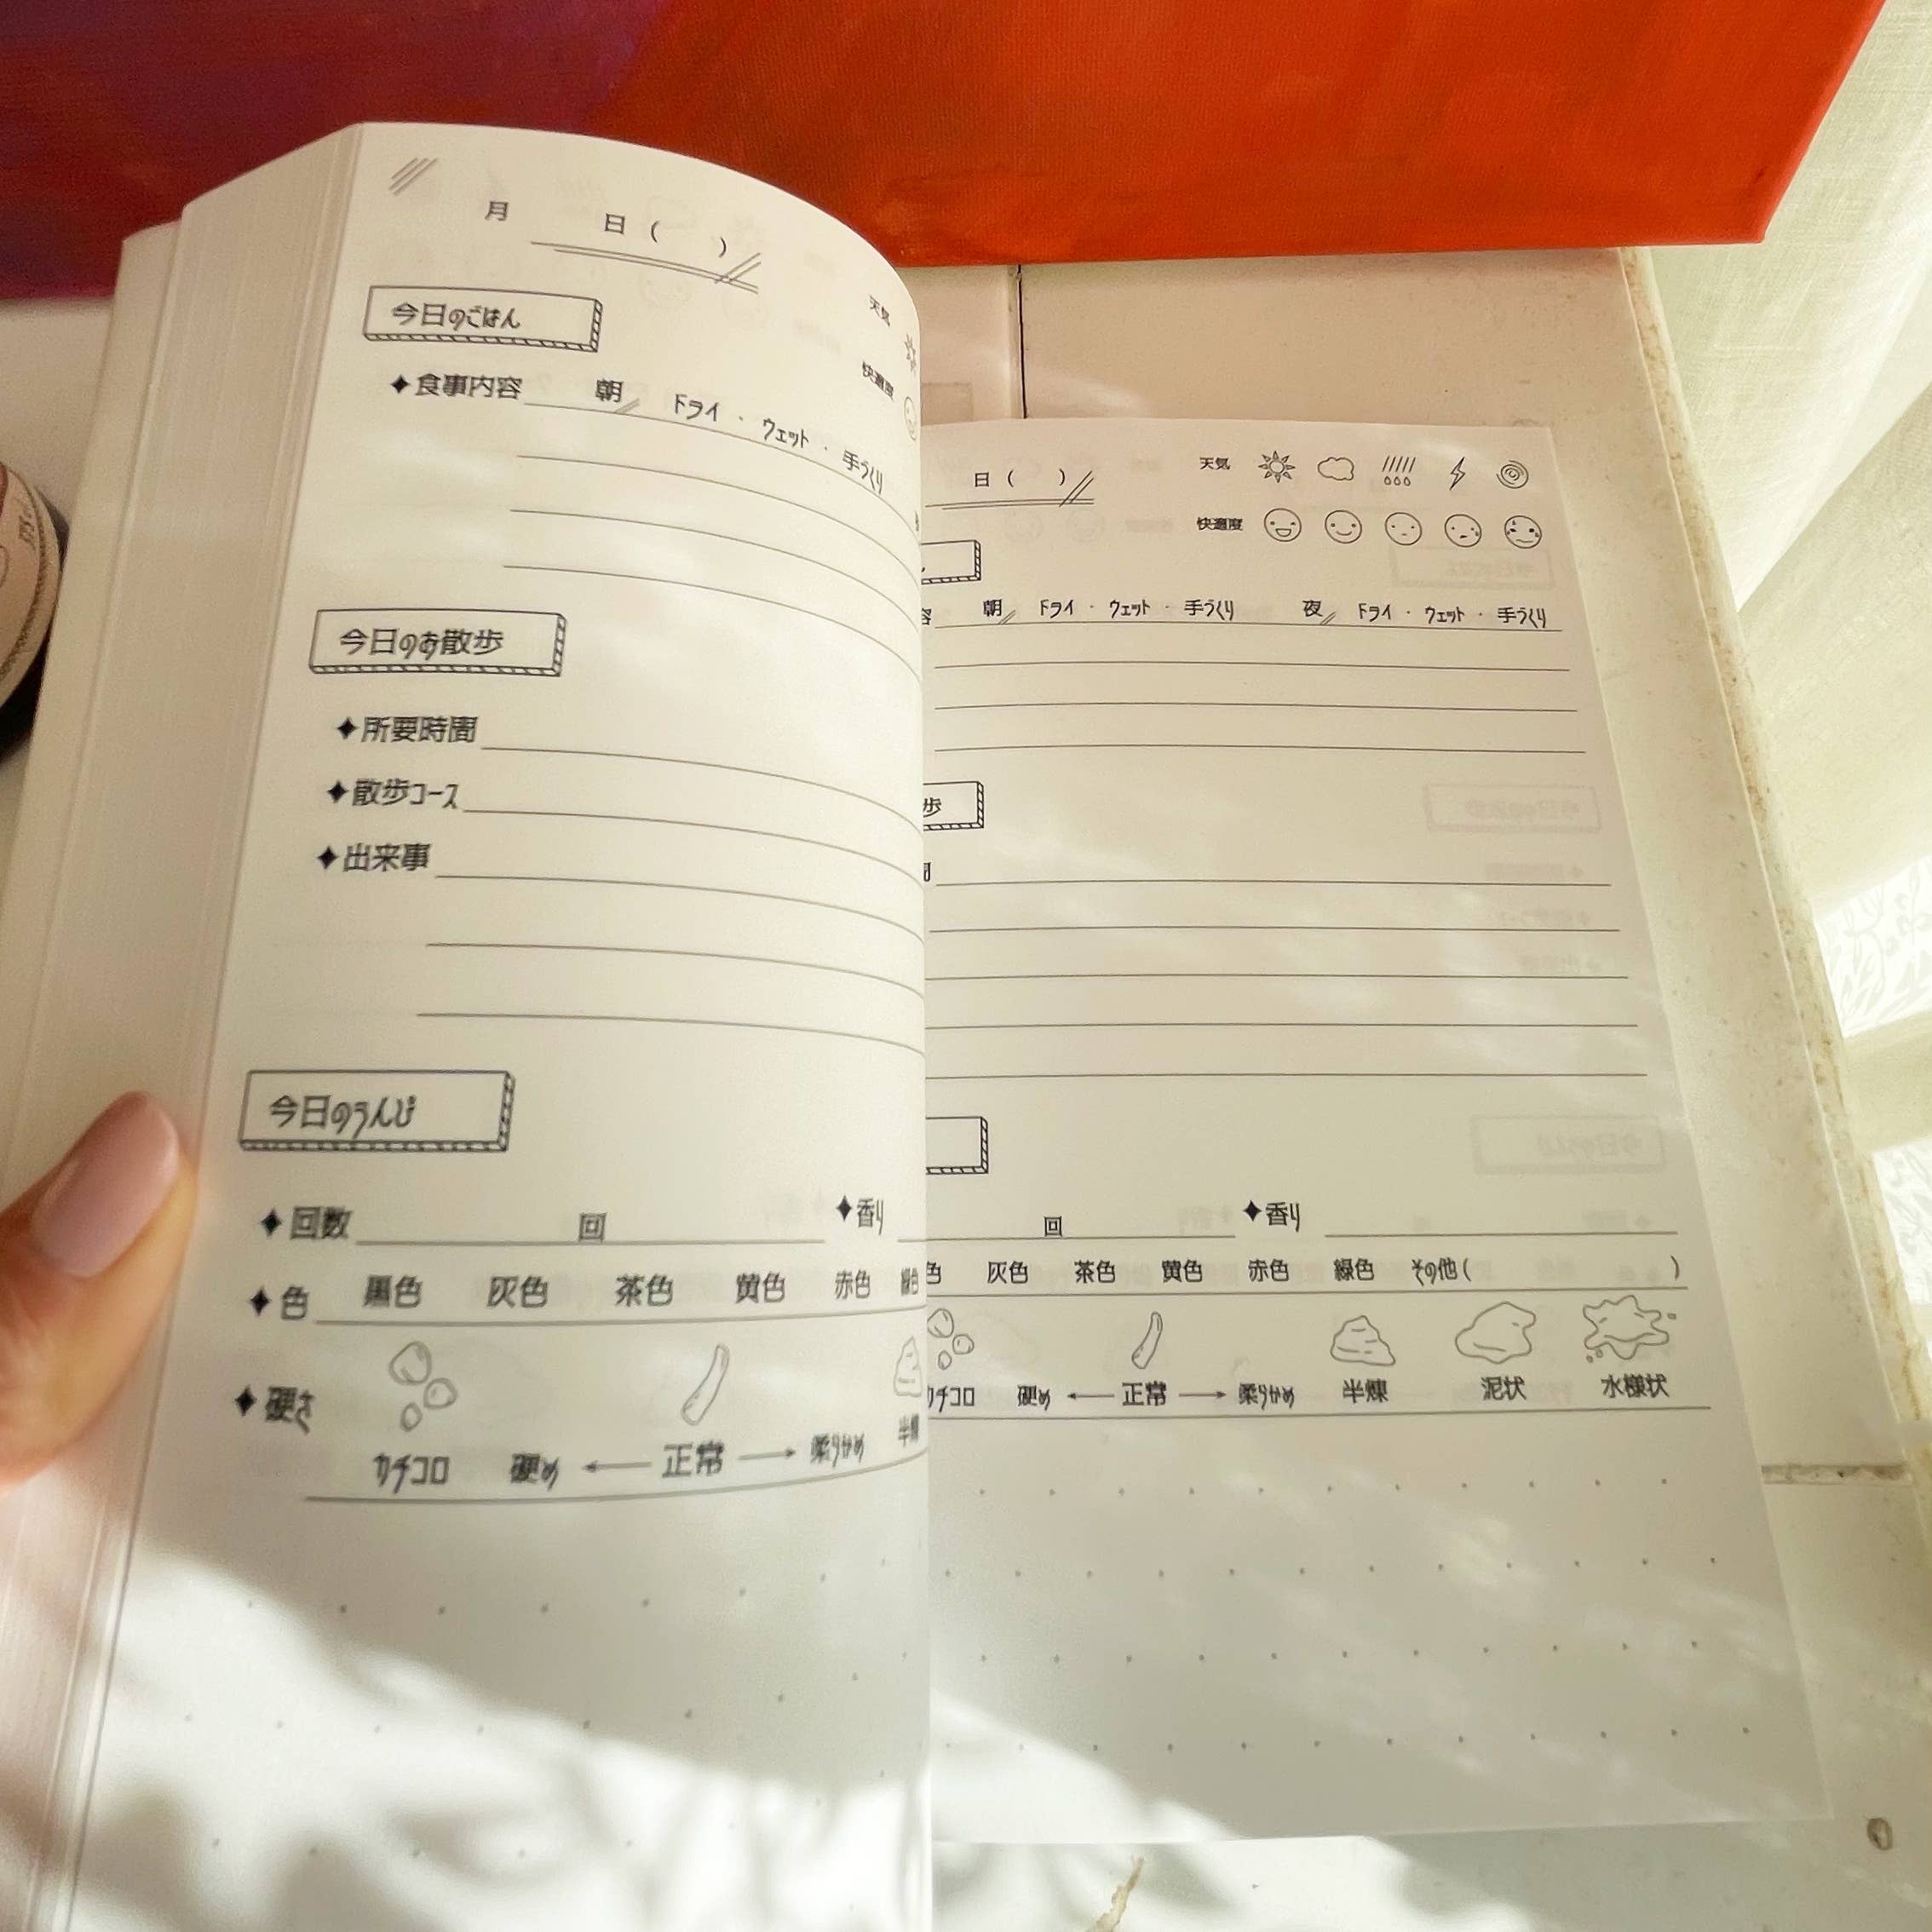 月 日( )
天気
今日のごはん
快適度
✦食事内容 朝 ドライ・ウェット・手づくり
今日のお散歩
✦所要時間
✦散歩コース
✦出来事
今日のうんぴ
✦回数 回 ✦香り
✦色 黒色 灰色 茶色 黄色 赤色 緑色
✦硬さ
カチコロ 硬め ← 正常 → 柔らかめ 半
日( ) 天気
快適度
容 朝 ドライ・ウェット・手づくり 夜 ドライ・ウェット・手づくり
歩
間
回 ✦香り
色 灰色 茶色 黄色 赤色 緑色 その他( )
カチコロ 硬め ← 正常 → 柔らかめ 半煉 泥状 水様状